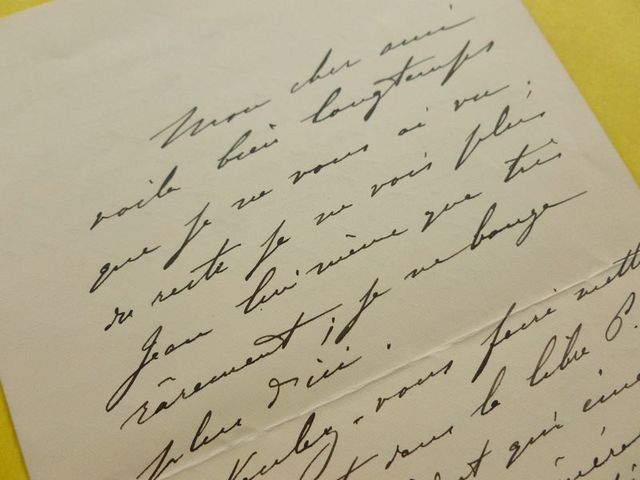 Mon cher ami
voilà bien longtemps
que je ne vous ai vu.
du reste je ne vois plus
Jean lui même que très
rârement ; je ne bouge
plus d'ici.
Voulez-vous faire mett
dans le libre P.
qui